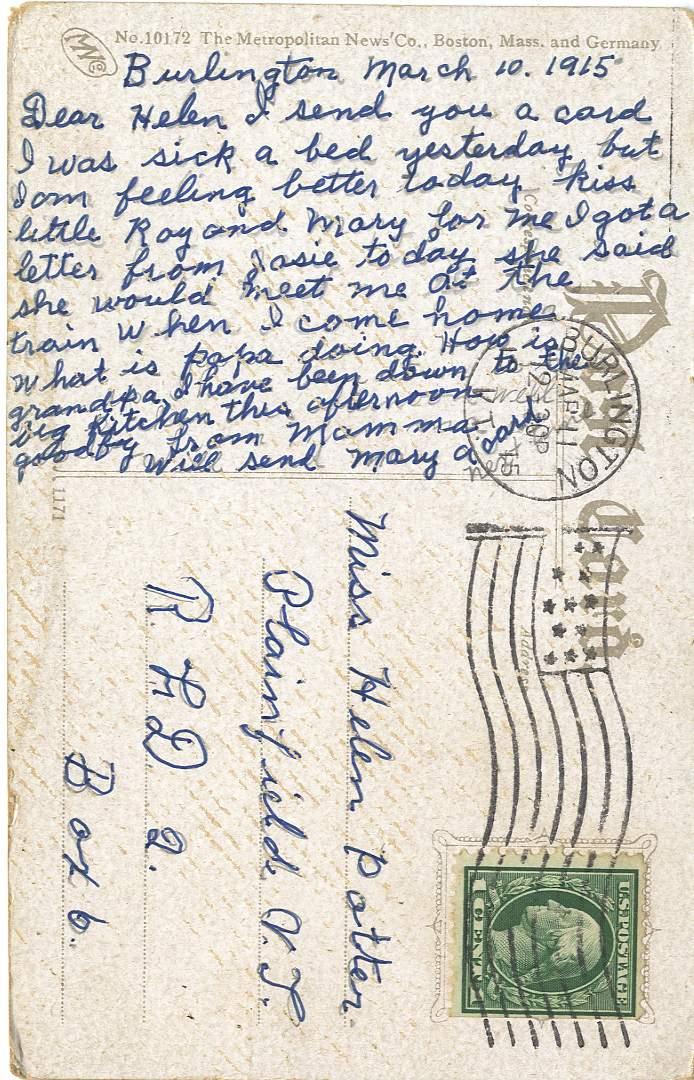 No. 10172 The Metropolitan News Co., Boston, Mass. and Germany
Burlington March 10. 1915
Dear Helen I send you a card
I was sick a bed yesterday but
I am feeling better today kiss
little Ray and Mary for me I got a
letter from Josie today she said
she would meet me at the
train when I come home
what is papa doing. How is
grandpa, I have been down to the
big kitchen this afternoon
goodby from Mamma
Will send Mary a card
Post Card
Address
BURLINGTON
MAR 11
12 30P
VT.
1171
Miss Helen Potter.
Plainfield V.T.
R. F. D 2.
Box 6.
U.S. POSTAGE
1 CENT 1